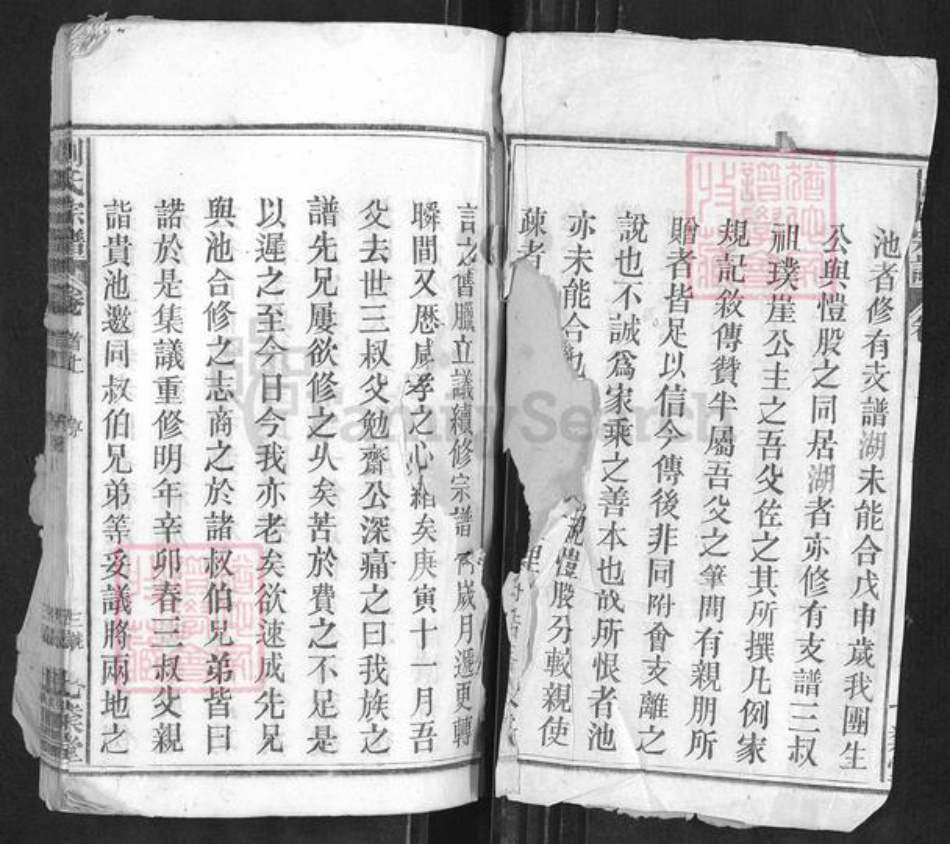 池者修有支譜湖未能合戊申歲我團生
公與愷股之同居湖者亦修有支譜三叔
祖璞崖公主之吾父佐之其所撰凡例家
規記敘傳贊半屬吾父之筆間有親朋所
贈者皆足以信今傳後非同附會支離之
說也不誠爲家乘之善本也故所恨者池
亦未能合也 愷股分較親使
疎者
言之舊臘立議續修宗譜 歲月遞更轉
瞬間又歷 孝之心 矣庚寅十一月吾
父去世三叔父勉齋公深痛之曰我族之
譜先兄屢欲修之久矣苦於費之不足是
以遲之至今日今我亦老矣欲速成先兄
與池合修之志商之於諸叔伯兄弟皆曰
諾於是集議重修明年辛卯春三叔父親
詣貴池邀同叔伯兄弟等妥議將兩地之
劉氏宗譜 卷首上 序
FamilySearch